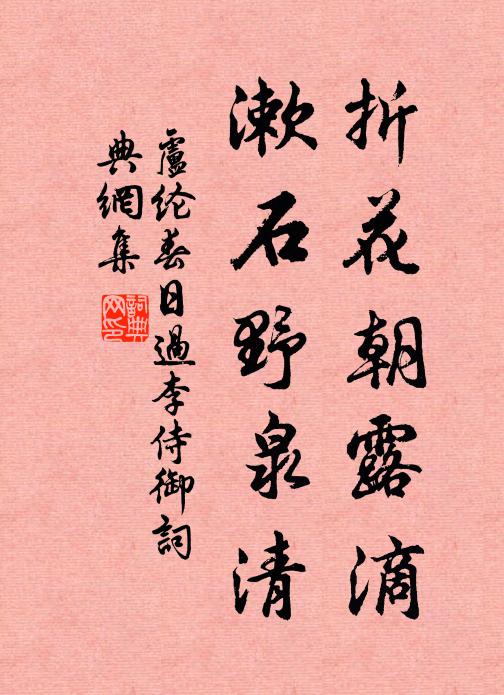 折花朝露滴
漱石野泉清
盧纶春日過李侍御詞
典網集
詞典網印